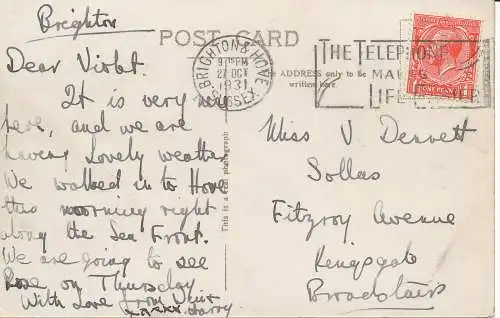 Brighton
POST CARD
Dear Violet.
It is very nice
here, and we are
having Lovely weather
We walked in to Hove
this morning right
along the Sea Front.
We are going to see
Rose on Thursday
With Love from
Harry.
This is a real photograph
The ADDRESS only to be
written here
BRIGHTON & HOVE
PM
27 OCT
1931
SUSSEX
THE TELEPHONE
MAKES
LIFE
ONE PENNY
Miss V Dennett
Sollas
Fitzroy Avenue
Kingsgate
Broadstairs